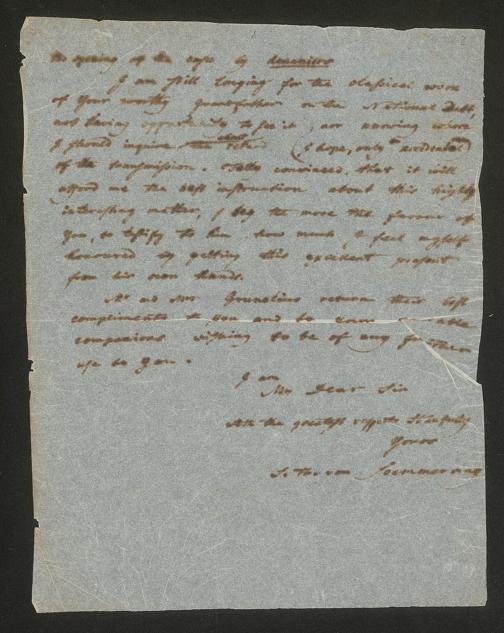 the opening of the case by
I am still longing for the classical work
of your worthy grandfather on the National Debt,
not having opportunity to see it, nor knowing where
I should inquire the (I hope, only accidental
of the transmission. Fully convinced, that it will
afford me the best instruction about this highly
interesting matter, I beg the more the favour of
you, to testify to him how much I feel myself
honoured by getting this excellent present
from his own hands.
Mr and Mrs Grunelius return their best
compliments to you and to your
companions wishing to be of any further
use to you.
I am
My Dear Sir
With the greatest respect
Yours
S. Th. von Soemmerring